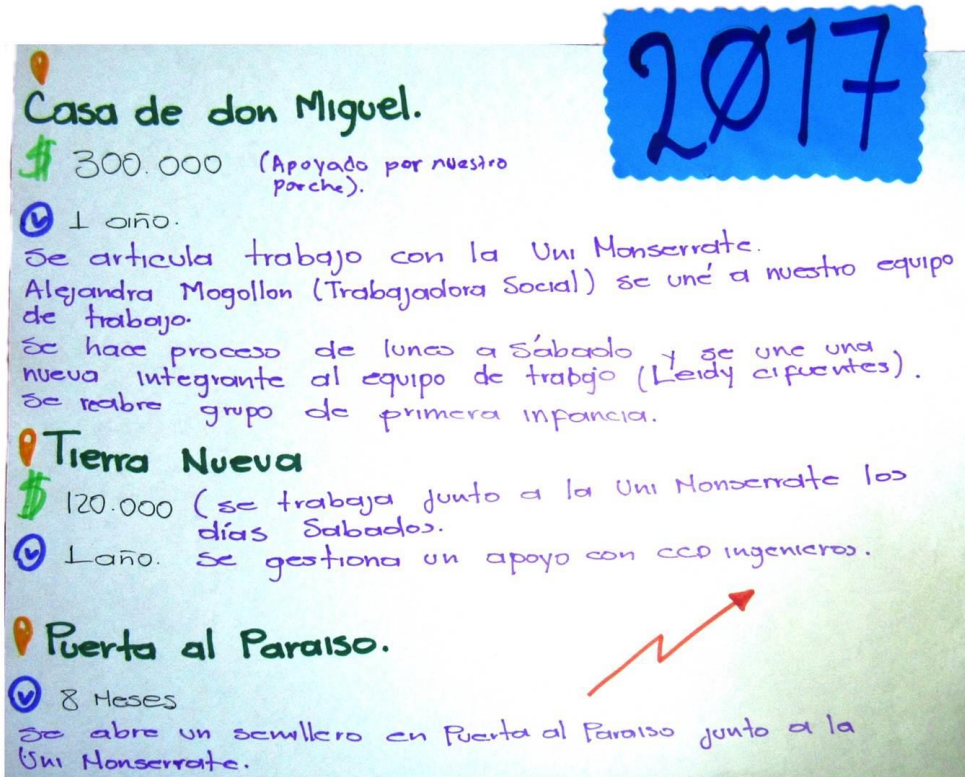 2017
Casa de don Miguel.
$ 300.000 (Apoyado por nuestro
parche).
1 año.
Se articula trabajo con la Uni Monserrate.
Alejandra Mogollon (Trabajadora Social) se uné a nuestro equipo
de trabajo.
Se hace proceso de lunes a Sábado y se une una
nueva integrante al equipo de trabjo (Leidy cifuentes).
Se reabre grupo de primera infancia.
Tierra Nueva
$ 120.000 (se trabaja junto a la Uni Monserrate los
días Sabados.
1 año. Se gestiona un apoyo con CCD ingenieros.
Puerta al Paraiso.
8 Meses
Se abre un semillero en Puerta al Paraiso junto a la
Uni Monserrate.